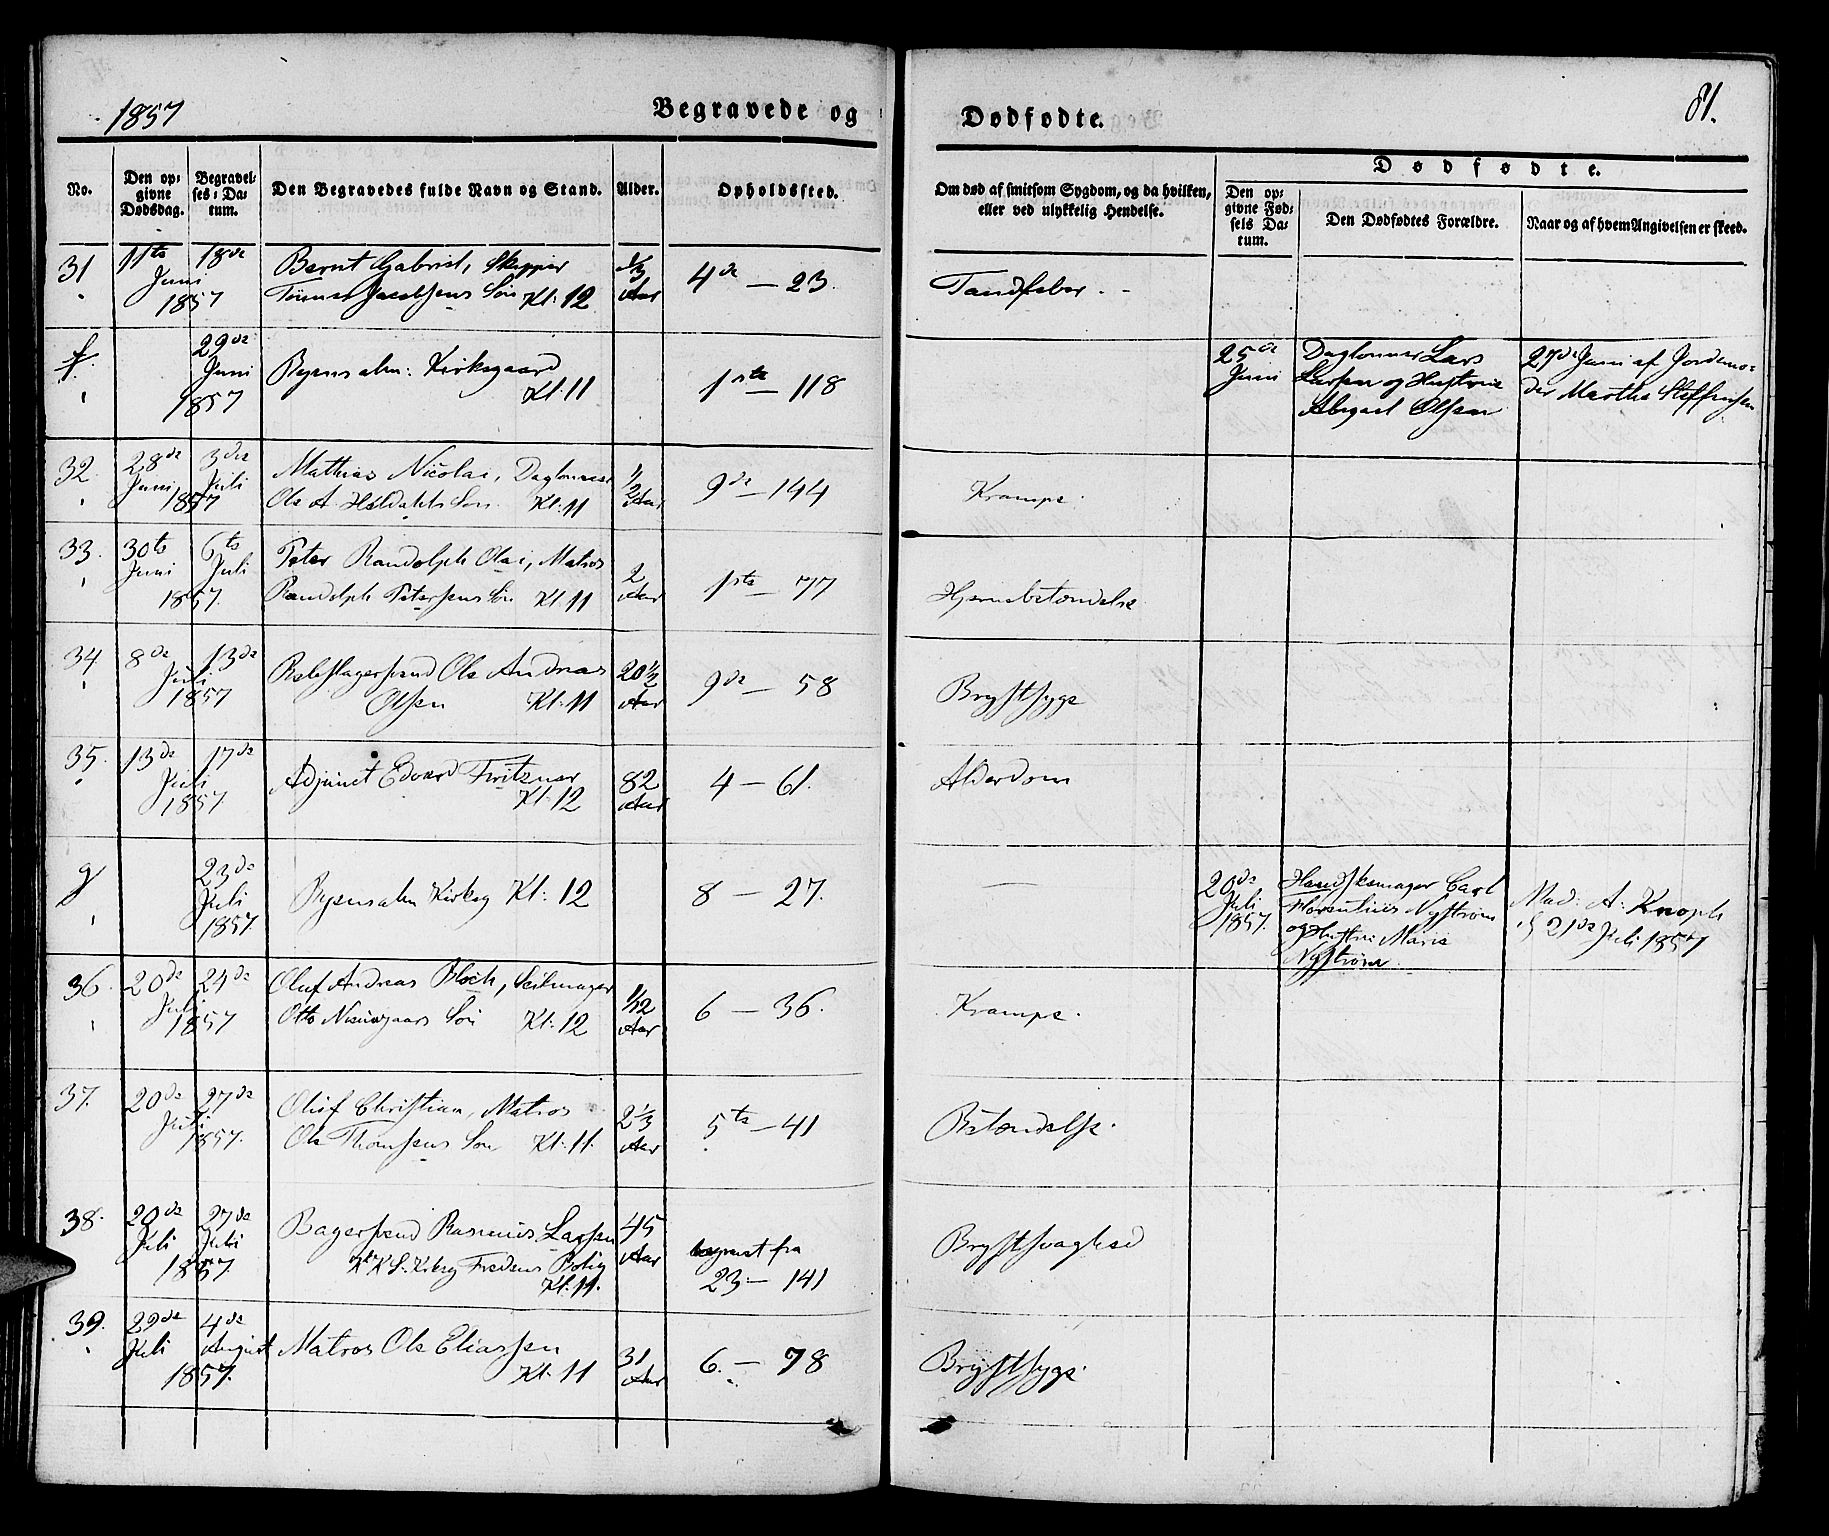 1857
Begravede og
Dødfødte.
81.
No.
Den op-
givne
Dødsdag.
Begravel-
ses-Da-
tum.
Den Begravedes fulde Navn og Stand.
Alder.
Opholdssted.
Om død af smitsom Sygdom, og da hvilken,
eller ved ulykkelig Hendelse.
Dødfødte.
Den op-
givne Fød-
sels Da-
tum.
Den Dødfødtes Forældre.
Naar og af hvem Angivelsen er skeed.
31
11te
18de
Juni
1857
Bernt Gabriel, Skipper
Jacobsens Søn Kl: 12
1/3
Aar
4de — 23.
Tandfeber.
f.
29de
Juni
1857
Byens alm: Kirkegaard
Kl: 11
1ste — 118
25de
Juni
Daglønner Lars
Larsen og Hustrue
Abigael Olsen
27de Juni af Jordemo-
der Martha Steffensen
32.
28de
Juni
3die
Juli
1857
Mathias Nicolai, Daglønner
Ole A. Heldahls Søn Kl: 11
1/2
Aar
9de — 144
Krampe.
33.
30te
Juni
6te
Juli
1857.
Peter Randolph Olai, Matros
Randolph Petersens Søn Kl: 11
2
Aar
1ste — 77
Hjernebetændelse
34
8de
13de
Juli
1857
Rebslagersvend Ole Andreas
Olsen Kl: 11
20 1/2
Aar
9de — 58
Brystsyge
35.
13de
17de
Juli
1857
Adjunct Edvard Fritzner
Kl: 12
82
Aar
4 — 61.
Alderdom
g
23de
Juli
1857.
Byens alm Kirkeg Kl: 12
8 — 27.
20de
Juli
1857.
Handskemager Carl
Florentius Nystrøm
og Hustru Marie
Nystrøm.
Mad: A. Knoph
d 21de Juli 1857
36.
20de
24de
Juli
1857
Oluf Andreas Bloch, Seilmager
Otto Søn Kl: 12
1/12
Aar
6 — 36.
Krampe.
37.
20de
27de
Juli
1857.
Oluf Christian, Matros
Ole Thomsens Søn Kl: 11.
2 1/3
Aar
5te — 41
Betændelse.
38.
20de
Juli
27de
Juli
1857
Bagersvend Rasmus Larsen
Fredens Bolig
Kl: 11.
45
Aar
begravet fra
23 — 141
Brystsvaghed
39.
29de
Juli
4de
August
1857.
Matros Ole Eliassen
Kl: 11
31
Aar
6. — 78
Brystsyge.